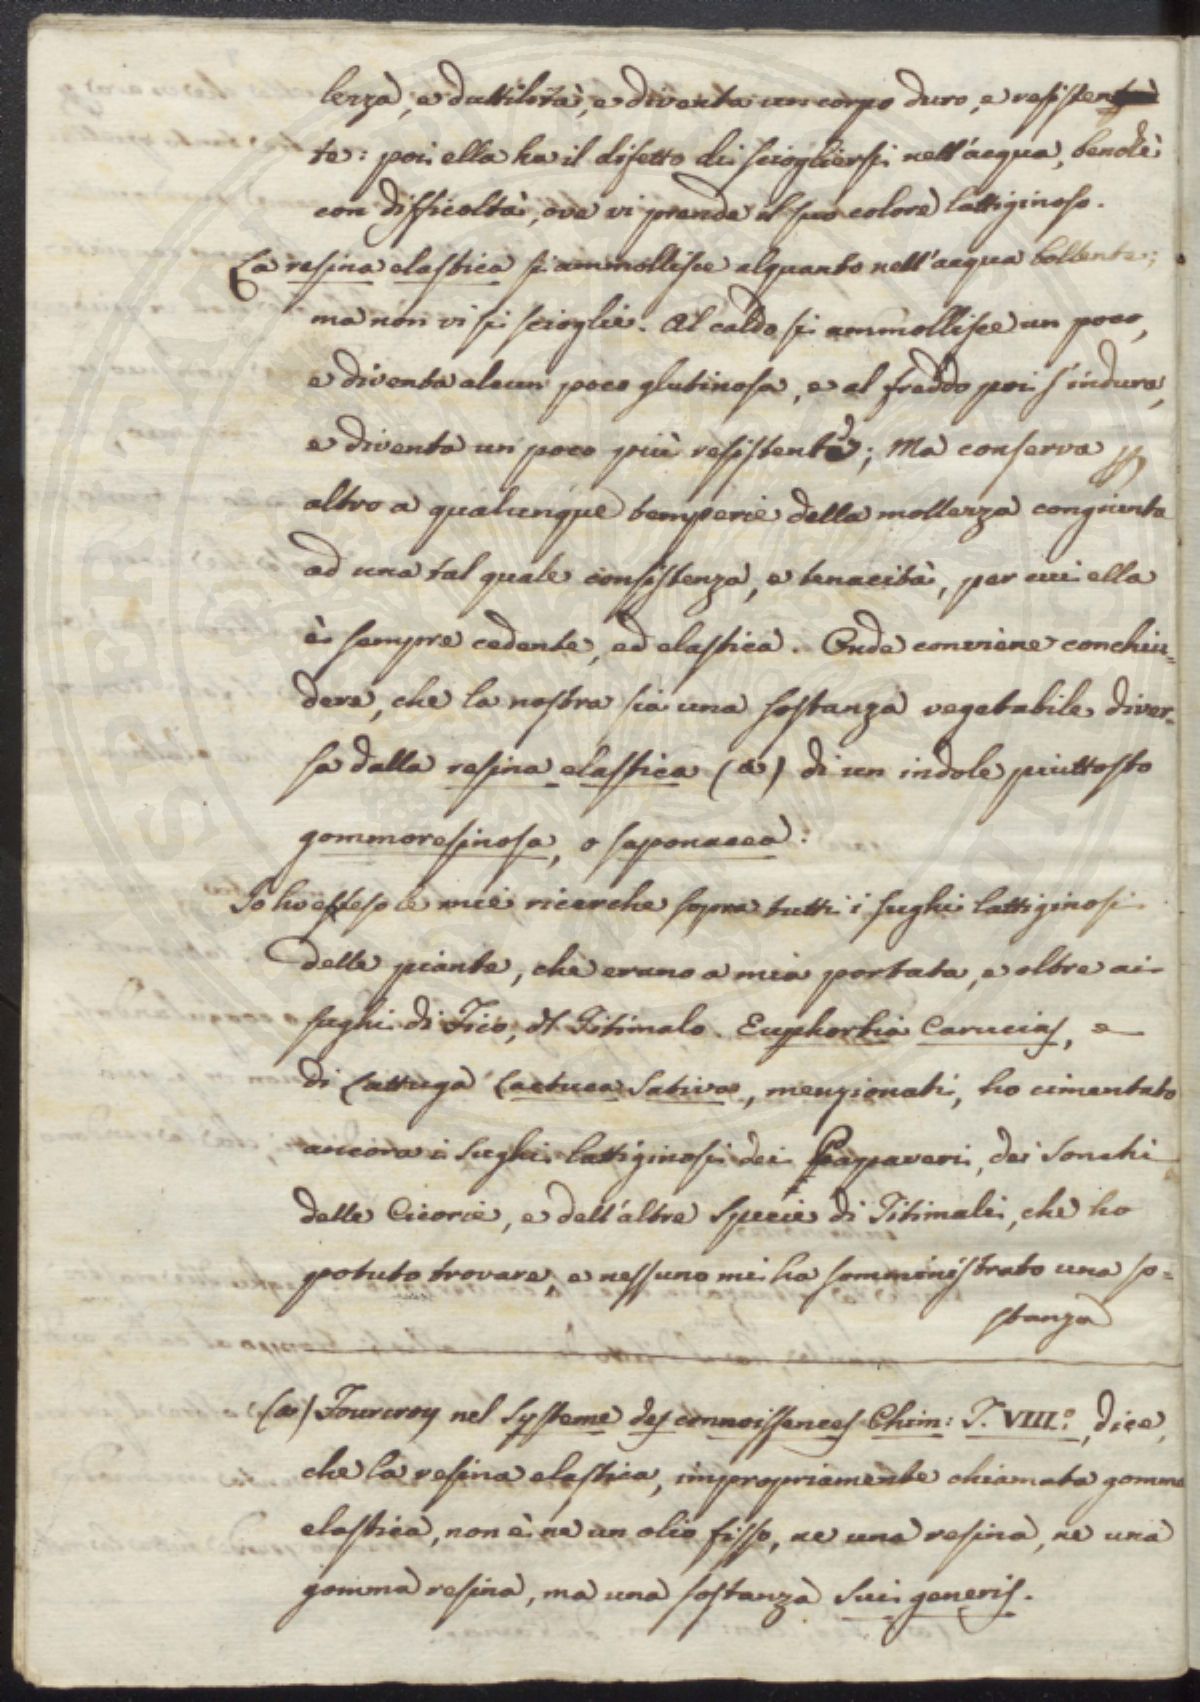 lezza, e duttilità, e diventa un corpo duro, e resisten
te: poi ella ha il difetto di sciogliersi nell'acqua, benchè
con difficoltà, ove vi prende il suo colore lattiginoso.
La resina elastica si ammollisce alquanto nell'acqua bollente;
ma non vi si scioglie. Al caldo si ammollisce un poco,
e diventa alcun poco glutinosa, e al freddo poi s'indura,
e diventa un poco più resistente; Ma conserva
altro a qualunque temperie della mollezza congiunta
ad una tal quale consistenza, e tenacità, per cui ella
è sempre cedente, ed elastica. Onde conviene conchiu-
dere, che la nostra sia una sostanza vegetabile diver-
sa dalla resina elastica (a) di un indole piuttosto
gommoresinosa, o saponacea.
Io ho esteso le mie ricerche sopra tutti i sughi lattiginosi
delle piante, che erano a mia portata, e oltre ai
sughi di Fico, di Titimalo Euphorbia Caracias, e
di Lattuga Lactuca Sativa, menzionati, ho cimentato
ancora i sughi lattiginosi dei Papaveri, dei Sonchi
delle Cicorie, e dell'altre specie di Titimali, che ho
potuto trovare, e nessuno mi ha somministrato una so-
stanza
(a) Fourcroy nel Systeme des connoissences Chim: T. VIII.° dice,
che la resina elastica, impropriamente chiamata gomma
elastica, non è ne un olio fisso, ne una resina, ne una
gomma resina, ma una sostanza sui generis.